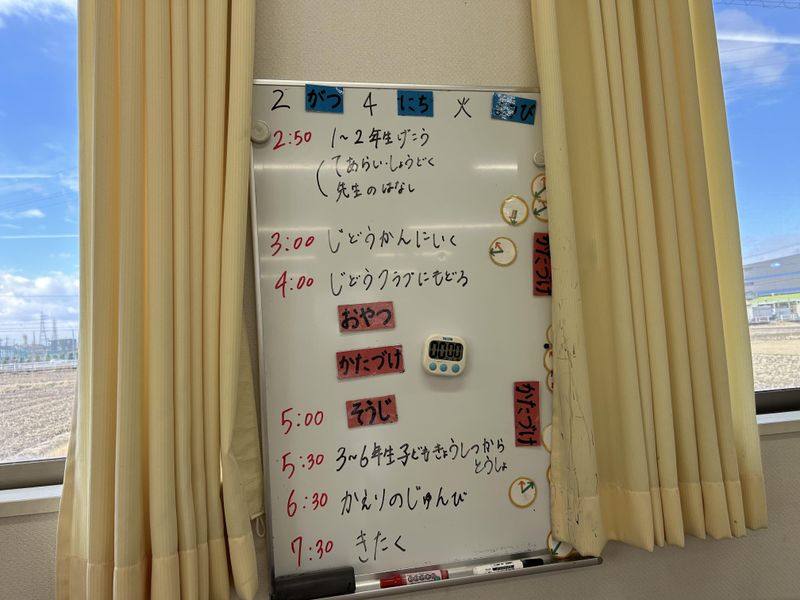 2 がつ 4 にち 火 び
2:50 1～2年生げこう
(てあらい・しょうどく
先生のはなし
3:00 じどうかんにいく
4:00 じどうクラブにもどる
おやつ
かたづけ
5:00 そうじ
5:30 3～6年生子どもきょうしつから
とうしょ
6:30 かえりのじゅんび
7:30 きたく
かたづけ
かたづけ
00:00